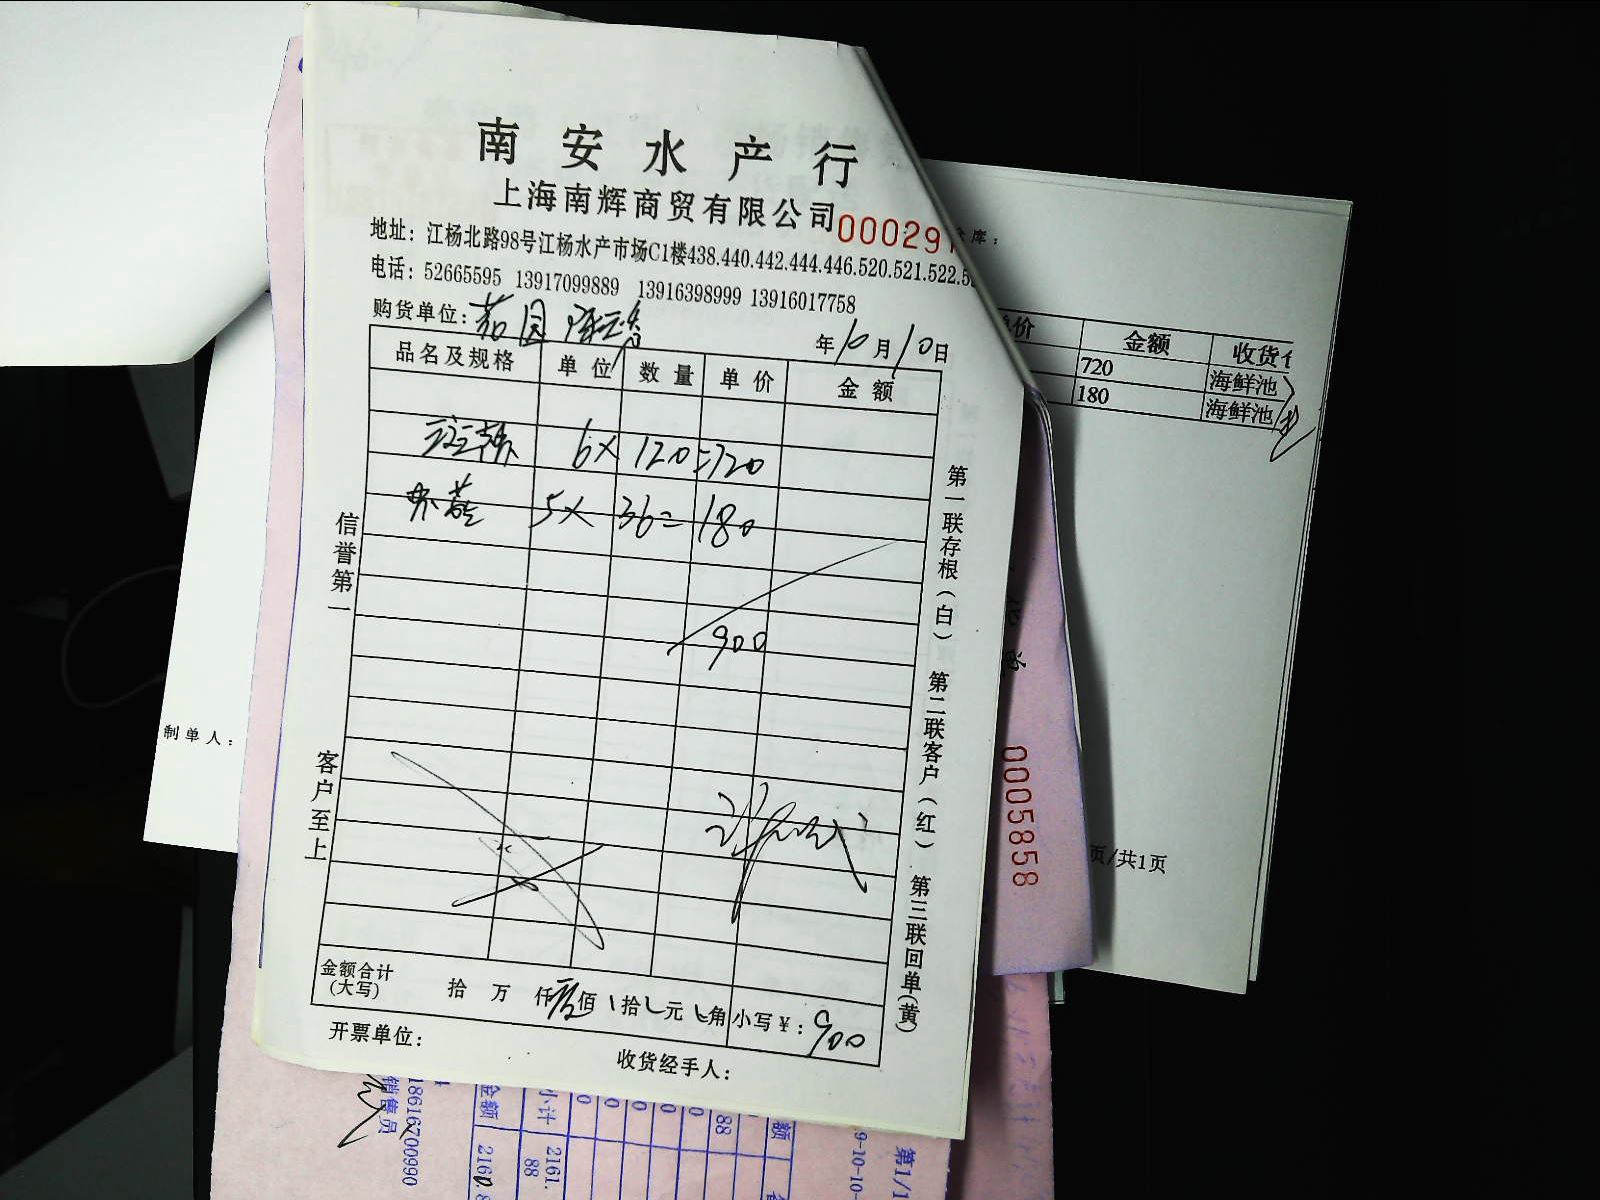 南安水产行
上海南辉商贸有限公司 000291
地址：江杨北路98号江杨水产市场C1楼438.440.442.444.446.520.521.522.5
电话：52665595 13917099889 13916398999 13916017758
购货单位：茄园
年10月10日
品名及规格 单位 数量 单价 金额
6× 120=720
5× 36=180
900
信誉第一
客户至上
第一联存根(白) 第二联客户(红) 第三联回单(黄)
金额合计(大写) 拾 万 仟 佰 拾 元 角 小写¥：900
开票单位：
收货经手人：
仓库：
单价 金额 收货
720 海鲜池
180 海鲜池
制单人：
页/共1页
0005858
销售员
18616700990
金额 2160.8
小计 2161.88
88
额
9-10-10-
第1/1